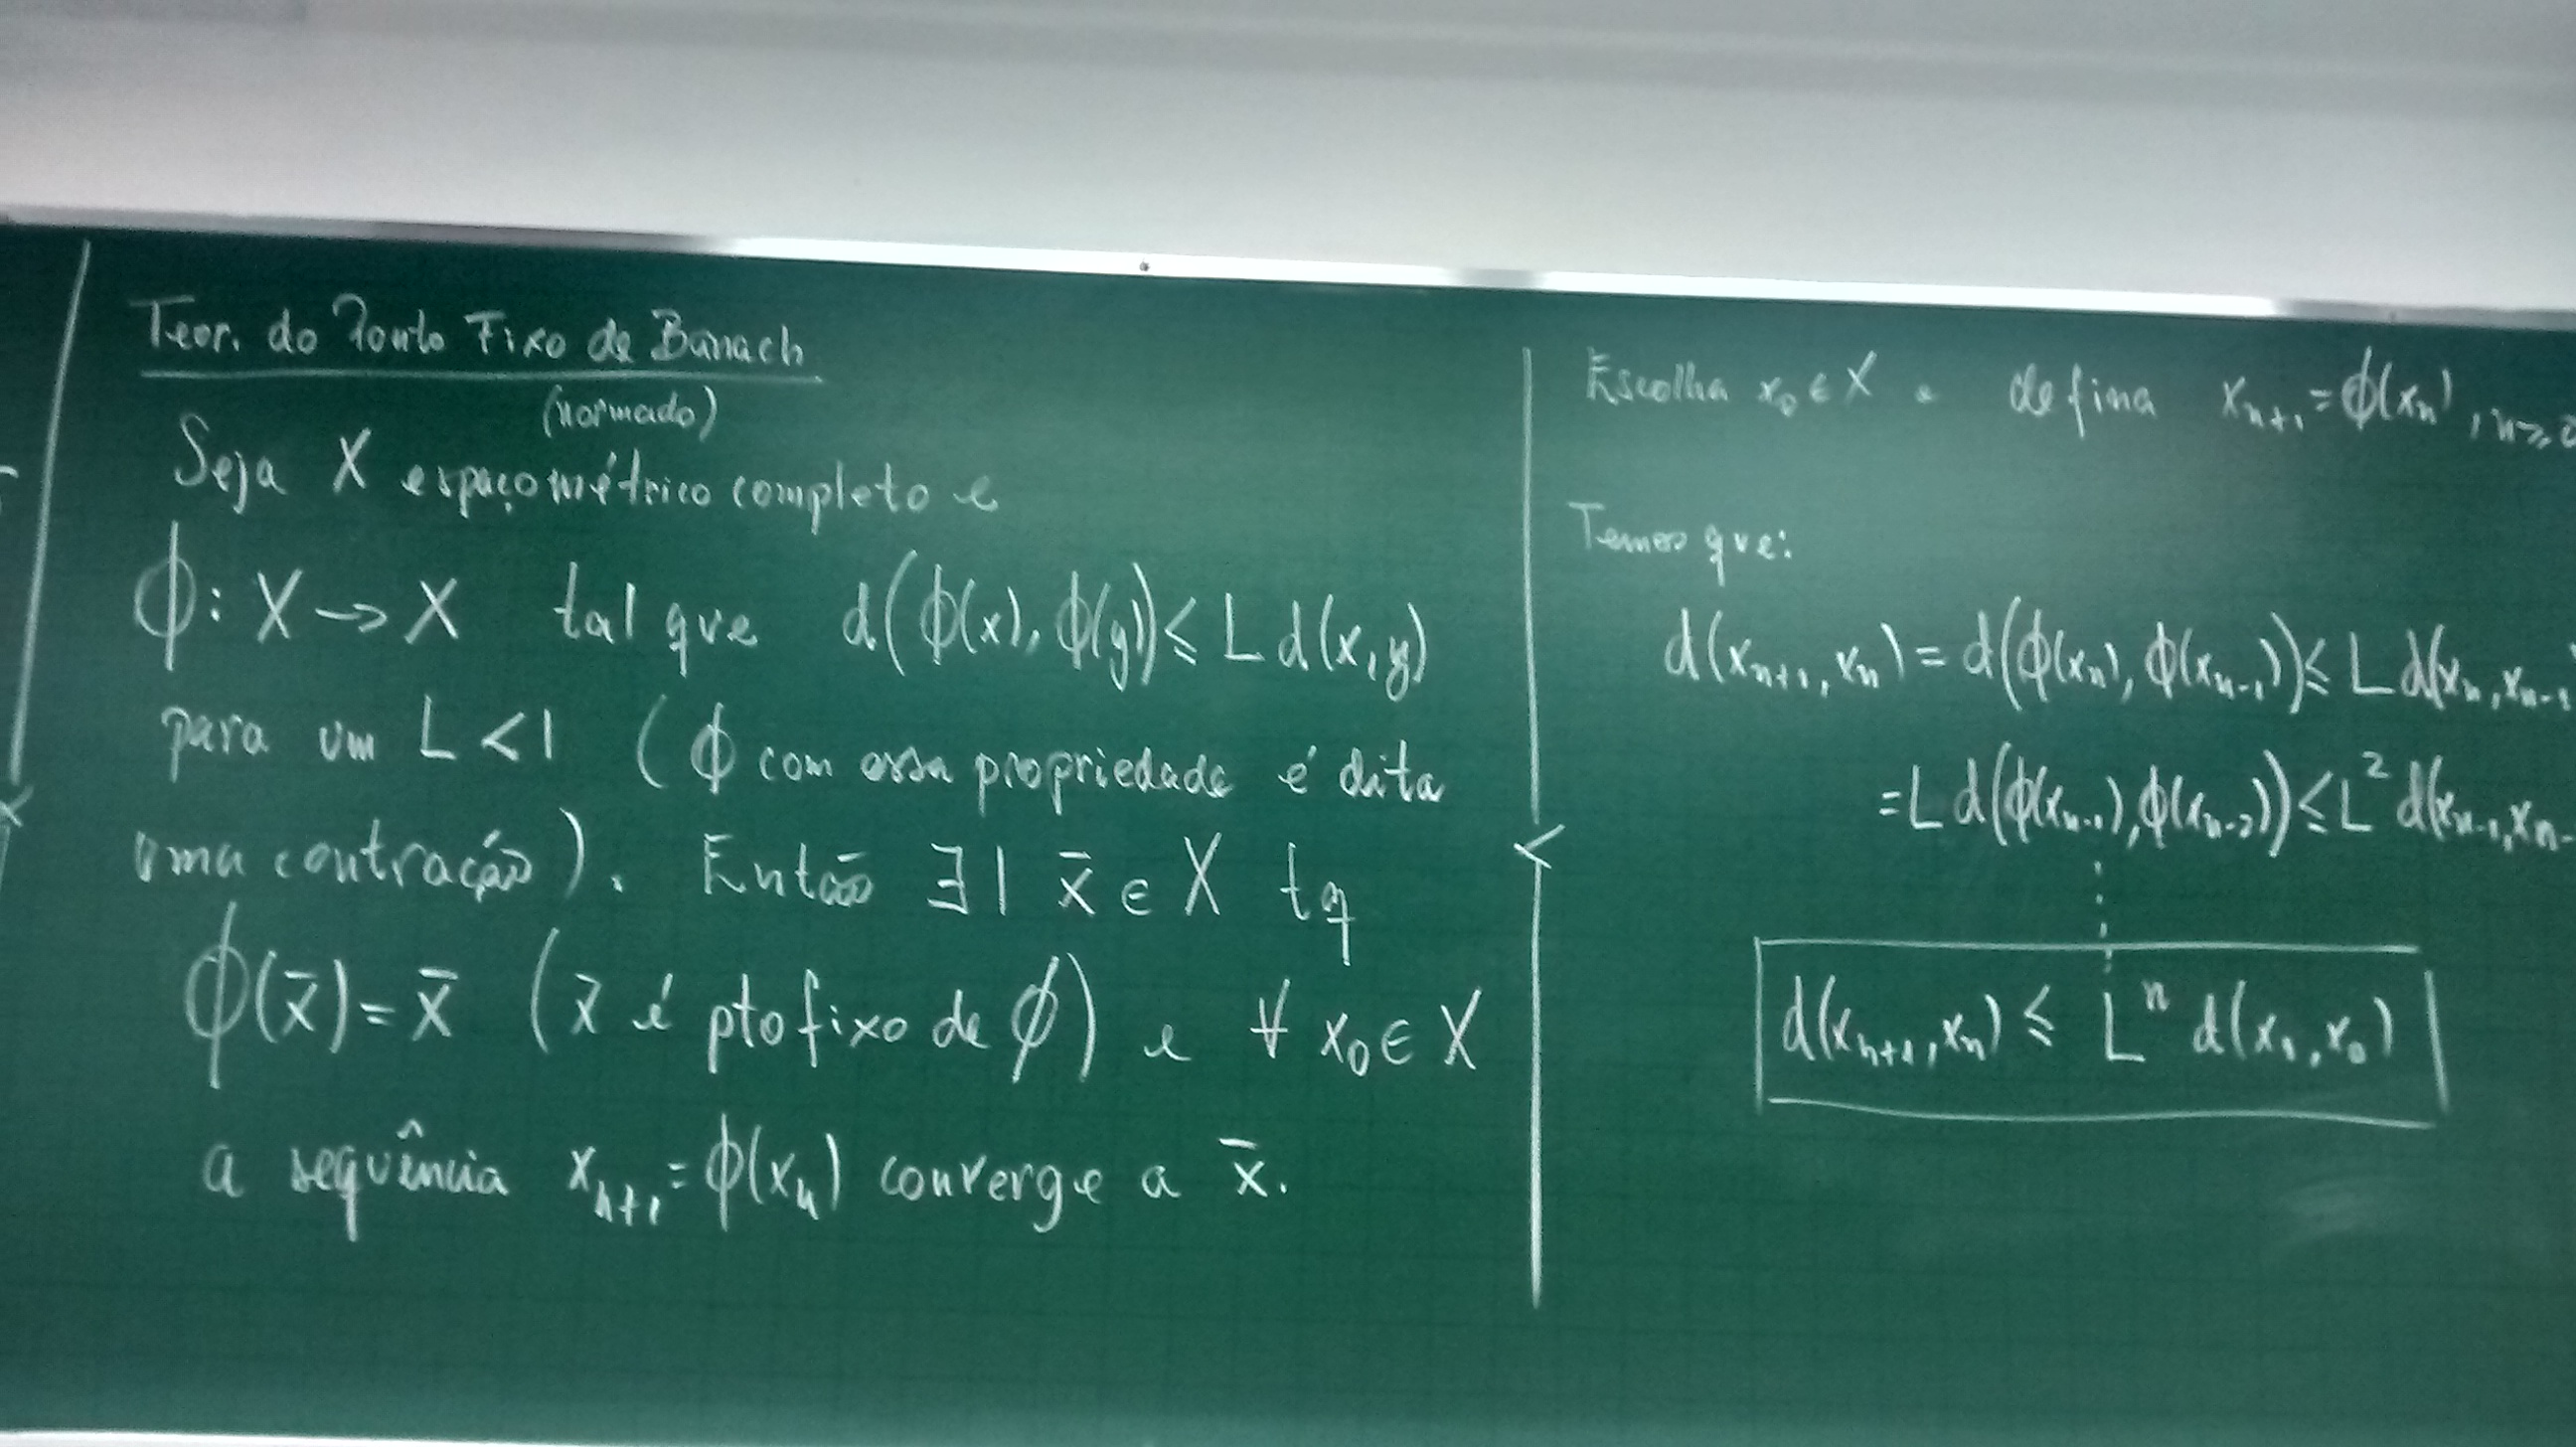 Teor. do Ponto Fixo de Banach
(normado)
Seja X espaço métrico completo e
ϕ: X → X tal que d(ϕ(x), ϕ(y)) ≤ L d(x, y)
para um L < 1 (ϕ com essa propriedade é dita
uma contração). Então ∃| x̄ ∈ X tq
ϕ(x̄) = x̄ (x̄ é pto fixo de ϕ) e ∀ x₀ ∈ X
a sequência xₙ₊₁ = ϕ(xₙ) converge a x̄.
Escolha x₀ ∈ X e defina xₙ₊₁ = ϕ(xₙ), n ≥ 0
Temos que:
d(xₙ₊₁, xₙ) = d(ϕ(xₙ), ϕ(xₙ₋₁)) ≤ L d(xₙ, xₙ₋₁)
= L d(ϕ(xₙ₋₁), ϕ(xₙ₋₂)) ≤ L² d(xₙ₋₁, xₙ₋
d(xₙ₊₁, xₙ) ≤ Lⁿ d(x₁, x₀)